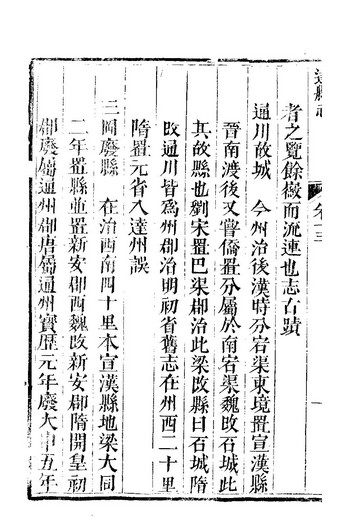 達縣志
卷十三
者之覽餘襒而流連也志古蹟
通川故城　今州治後漢時分宕渠東境置宣漢縣
晉南渡後又嘗僑置分屬於南宕渠魏改石城此
其故縣也劉宋置巴渠郡治此梁改縣曰石城隋
改通川皆爲州郡治明初省舊志在州西二十里
隋置元省入達州誤
三岡廢縣　在治西南四十里本宣漢縣地梁大同
二年置縣並置新安郡西魏改新安郡隋開皇初
郡廢屬通州郡唐屬通州寶歷元年廢大中五年